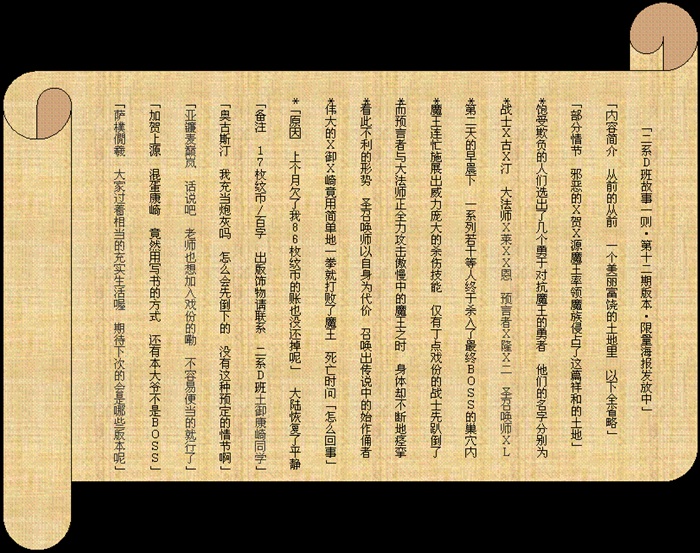 「二系D班故事一则·第十二期版本·限量海报发放中」
「内容简介 从前的从前 一个美丽富饶的土地里 以下全省略」
「部分情节 邪恶的X贺X源魔王率领魔族侵占了这篇祥和的土地」
*饱受欺负的人们选出了几个勇于对抗魔王的勇者 他们的名字分别为
*战士X古X汀 大法师X莱XX恩 预言者X隆X二 圣召唤师XL
*第二天的早晨下 一系列若干等人终于杀入了最终BOSS的巢穴内
*魔王连忙施展出威力庞大的杀伤技能 仅有丁点戏份的战士先趴倒了
*而预言者与大法师正全力攻击傲慢中的魔王之时 身体却不断地痉挛
*看此不利的形势 圣召唤师以自身为代价 召唤出传说中的始作俑者
*伟大的X御X崎竟用简单地一拳就打败了魔王 死亡时间「怎么回事」
*「原因 上个月欠了我86枚纹币的账也没还掉呢」 大陆恢复了平静
「备注 17枚纹币/百字 出版饰物请联系 二系D班土御康崎同学」
「奥古斯汀 我充当炮灰吗 怎么会先倒下的 没有这种预定的情节啊」
「亚鐮麦蘭岚 话说吧 老师也想加入戏份的嘞 不容易便当的就行了」
「加贺上源 混蛋康崎 竟然用写书的方式 还有本大爷不是BOSS」
「萨樸儞羲 大家过着相当的充实生活喔 期待下次的会是哪些版本呢」